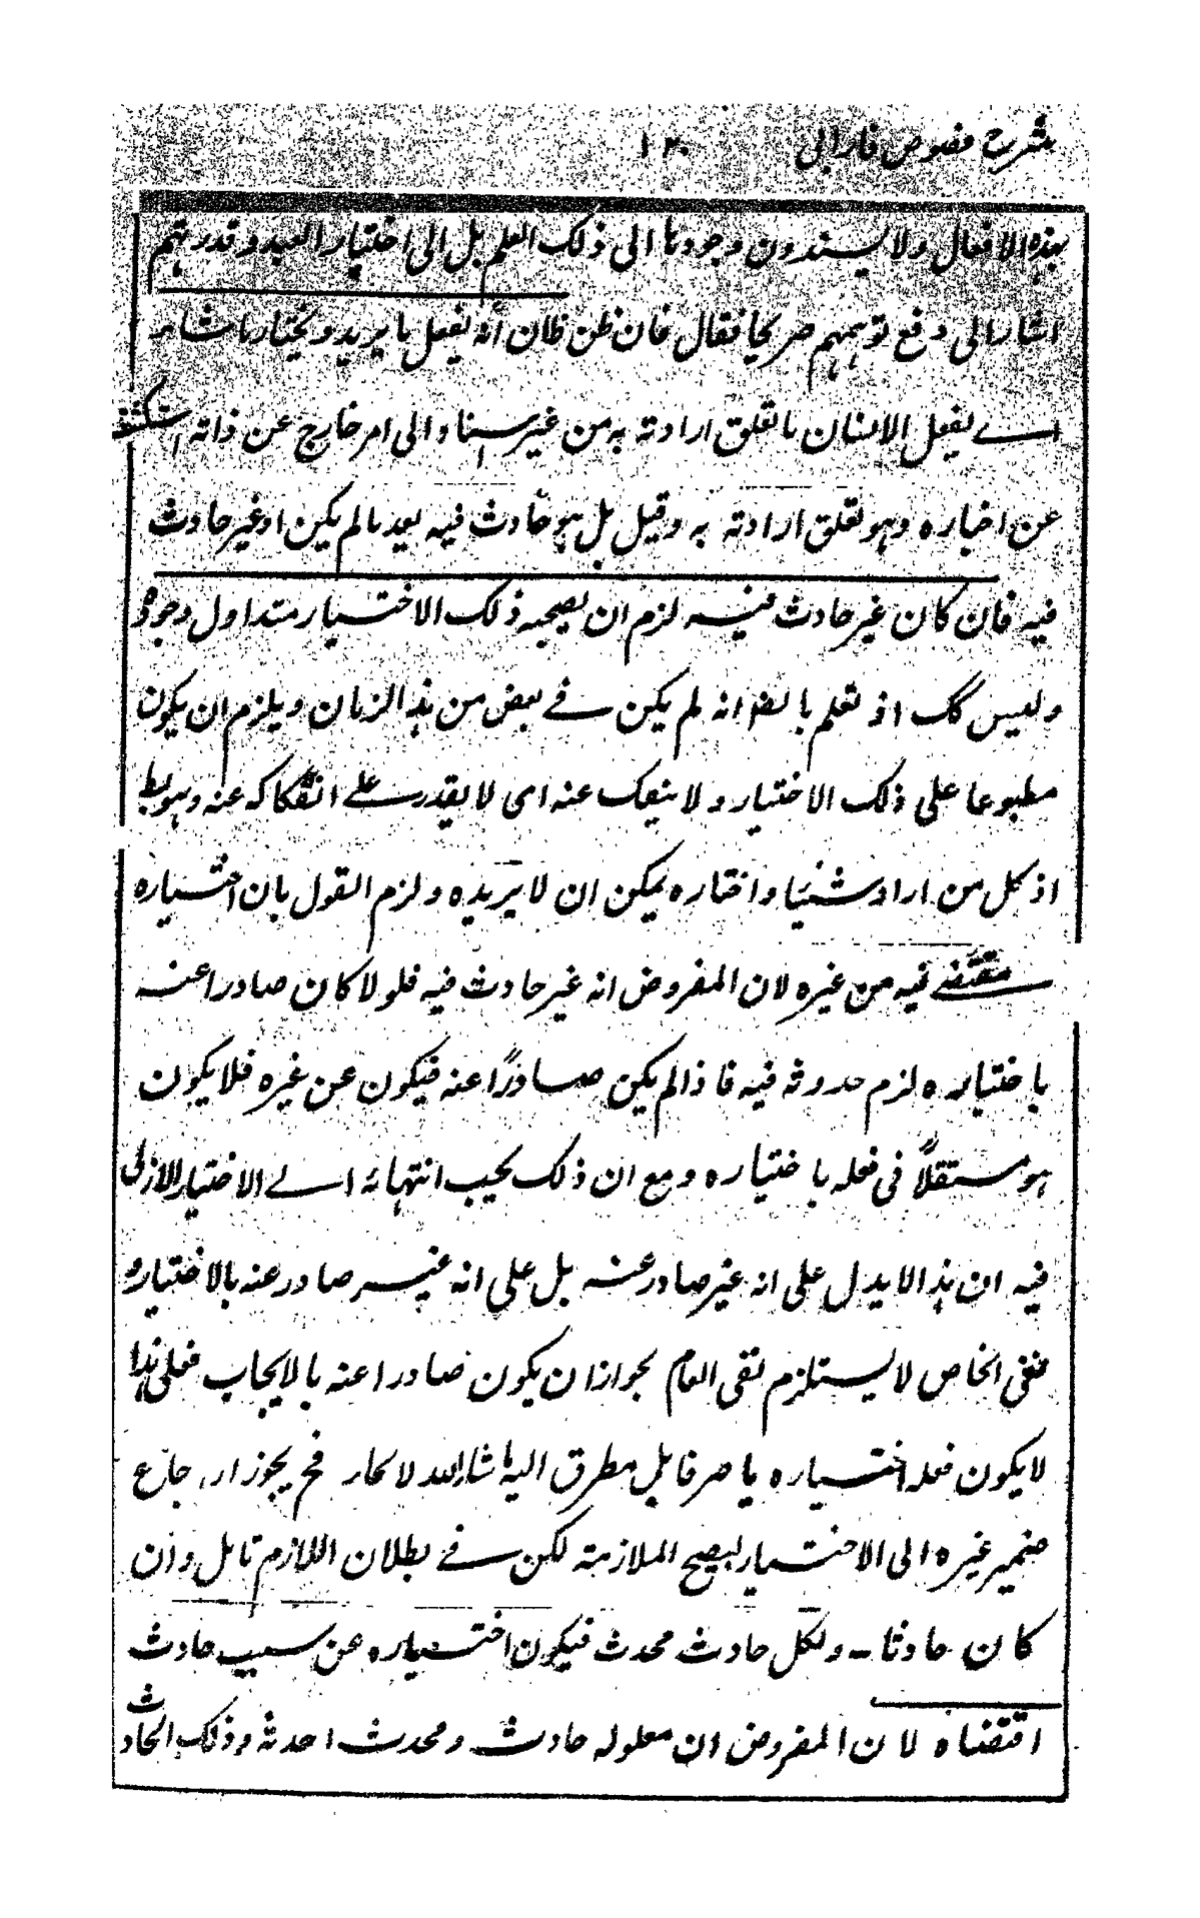 شرح فصوص فارابی ۱۲۰
بهذه الافعال ولا يسندون وجودها الى ذلك العلم بل الى اختيار العبد وقدرتهم
اشار الى دفع توهمهم صريحا فقال فان ظن ظان أنه يفعل ما يريد ويختار ما شاء
اے يفعل الانسان ما تعلق ارادته به من غير استناد الى امر خارج عن ذاته استكشف
عن اختياره وهو تعلق ارادته به وقيل بل هو حادث فيه بعد ما لم يكن او غير حادث
فيه فان كان غير حادث فيه لزم ان يصحبه ذلك الاختيار منذ اول وجوده
وليس كك اذ نعلم بالضرانه لم يكن فے بعض من هذا الزمان ويلزم ان يكون
مطبوعا على ذلك الاختيار ولا ينفك عنه اى لا يقدر على انفكاكه عنه وهو بط
اذ كل من اراد شئيا واختاره يمكن ان لا يريده ولزم القول بان اختياره
مقتضے فيه من غيره لان المفروض انه غير حادث فيه فلو لا كان صادرا عنه
باختياره لزم حدوثه فيه فاذا لم يكن صادرًا عنه فيكون عن غيره فلا يكون
هو مستقلاً فى فعله باختياره ومع ان ذلك يجب انتهائه الے الاختيار الازلى
فيه ان هذا لا يدل على انه غير صادر عنه بل على انه غير صادر عنه بالاختيار و
نفى الخاص لا يستلزم نفى العام لجواز ان يكون صادرا عنه بالايجاب فعلى هذا
لا يكون فعله اختياره يا صر قابل مطرق اليه ما شاء الله لا كار فح يجوز ار، جازع
ضمير غيره الى الاختيار ليصح الملازمة لكن فے بطلان اللازم تامل وان
كان حادثا - ولكل حادث محدث فيكون اختياره عن سبب حادث
اقتضاه لان المفروض ان معلوله حادث ومحدث احدثه وذلك الحادث